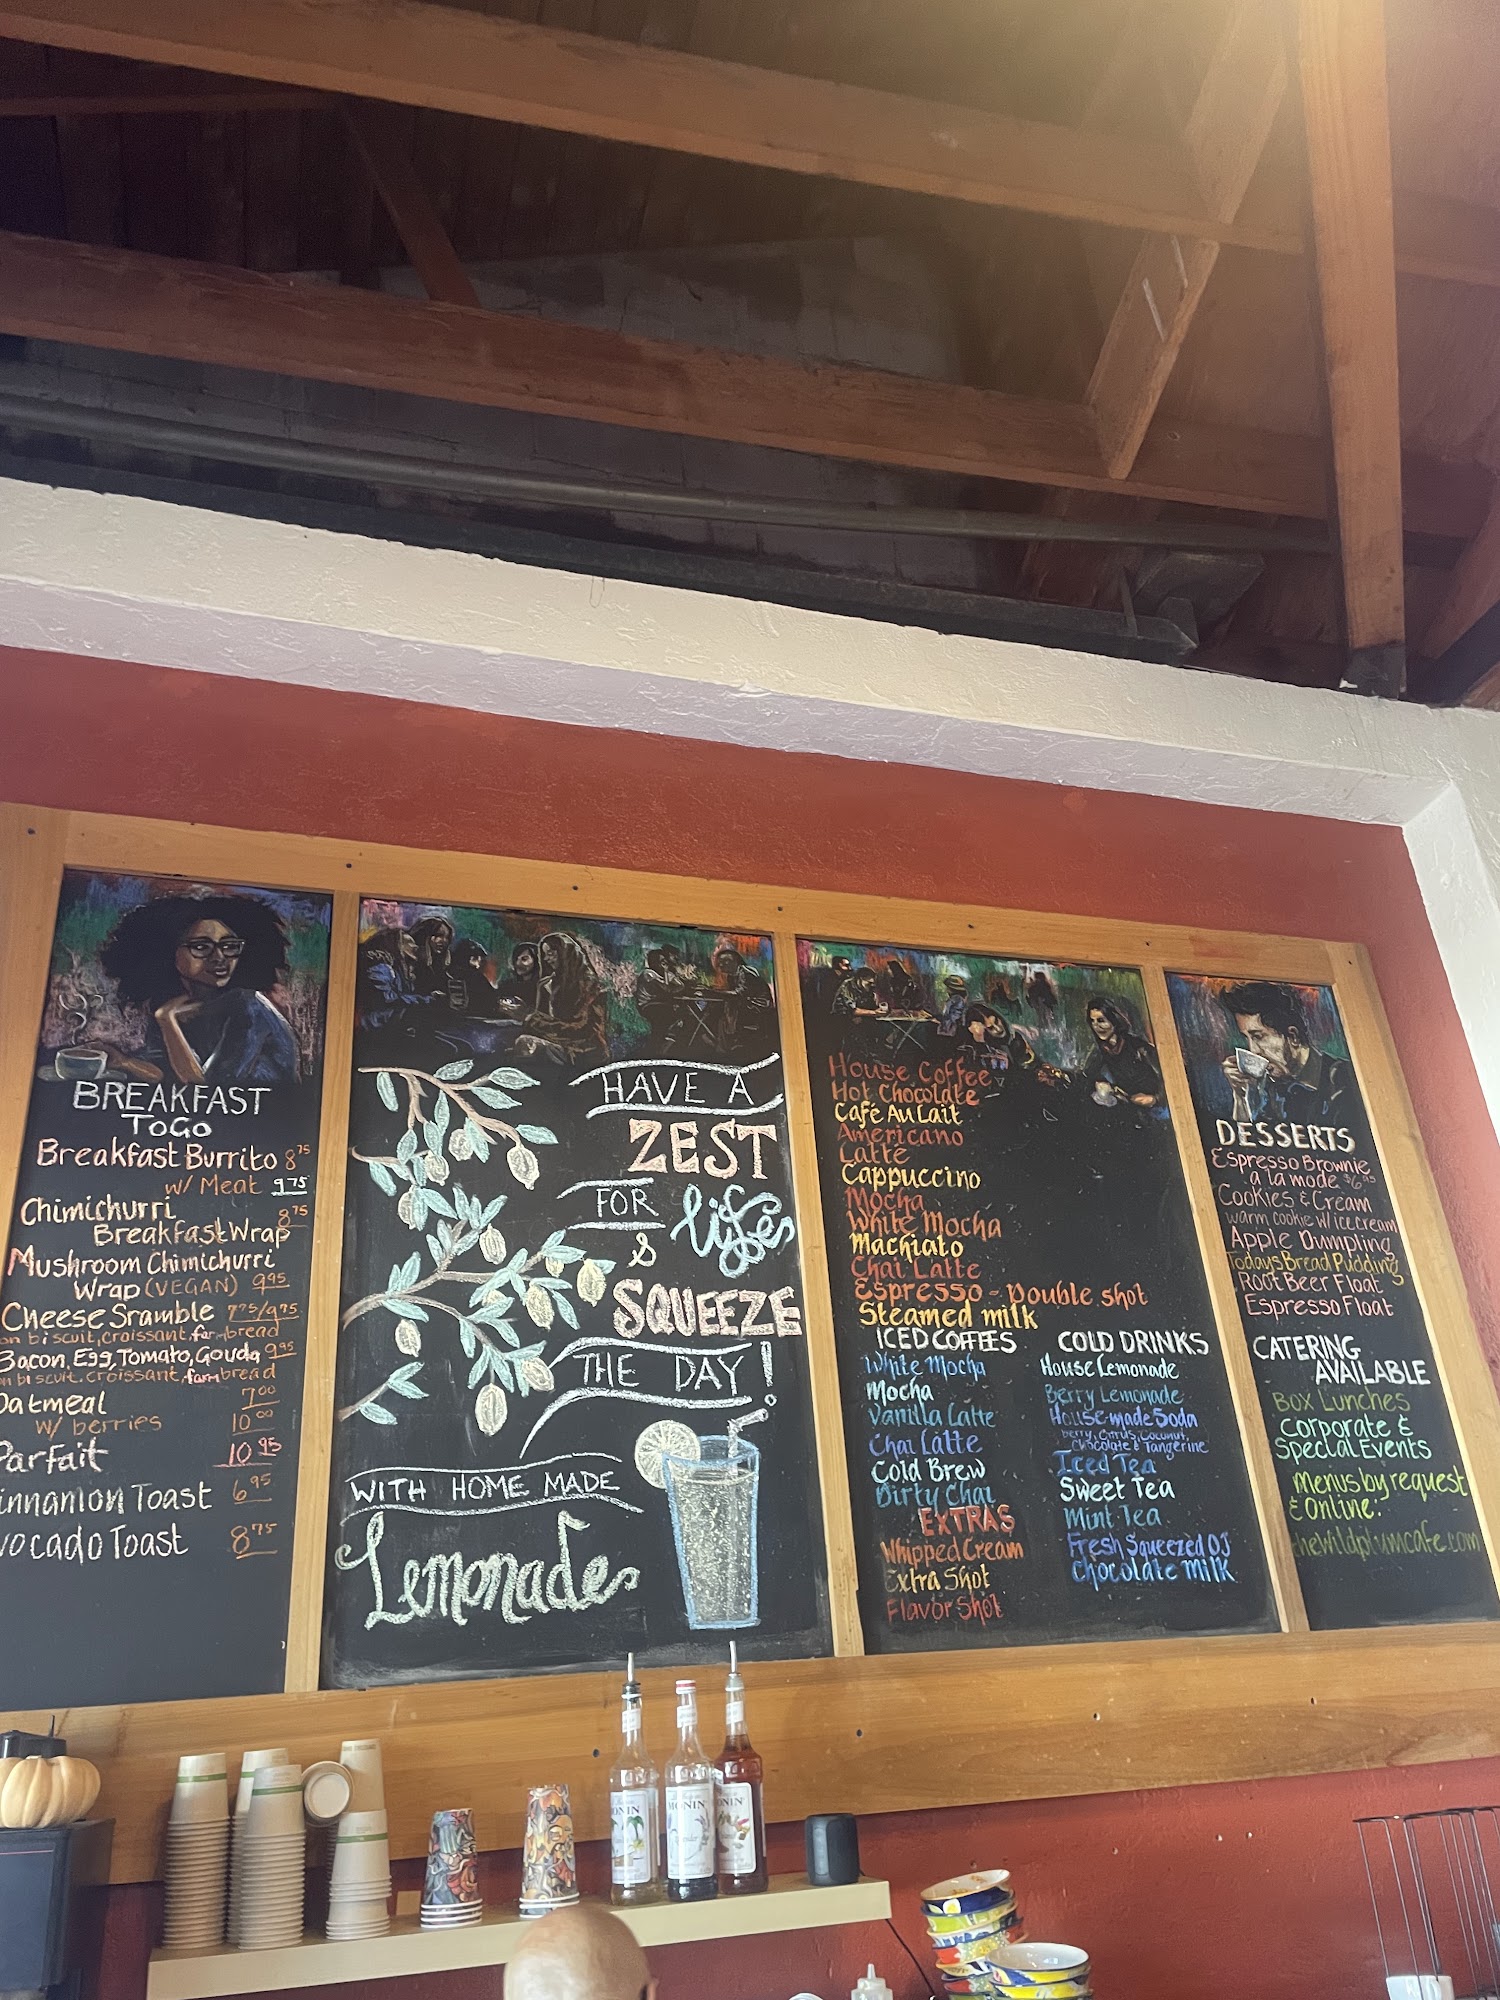 BREAKFAST
TOGO
Breakfast Burrito 8 75
w/ Meat 9 75
Chimichurri
Breakfast Wrap 8 75
Mushroom Chimichurri
Wrap (VEGAN) 9 95
Cheese Sramble 7 75/9 75
on biscuit, croissant, farm bread
Bacon, Egg, Tomato, Gouda 9 95
on biscuit, croissant, farm bread
Oatmeal 7 00
w/ berries 10 00
Parfait 10 95
innamon Toast 6 95
vocado Toast 8 75
HAVE A
ZEST
FOR life
&
SQUEEZE
THE DAY!
WITH HOME MADE
Lemonade
House Coffee
Hot Chocolate
Café Au Lait
Americano
Latte
Cappuccino
Mocha
White Mocha
Machiato
Chai Latte
Espresso - Double shot
Steamed milk
ICED COFFEES
White Mocha
Mocha
Vanilla Latte
Chai Latte
Cold Brew
Dirty Chai
EXTRAS
Whipped Cream
Extra Shot
Flavor Shot
COLD DRINKS
House Lemonade
Berry Lemonade
House-made Soda
berry, Citrus, Coconut,
Chocolate & Tangerine
Iced Tea
Sweet Tea
Mint Tea
Fresh Squeezed OJ
Chocolate Milk
DESSERTS
Espresso Brownie
a la mode
Cookies & Cream
warm cookie w/ ice cream
Apple Dumpling
Todays Bread Pudding
Root Beer Float
Espresso Float
CATERING
AVAILABLE
Box Lunches
Corporate &
Special Events
Menus by request
& Online:
thewildplumcafe.com
MONIN
MONIN
MONIN